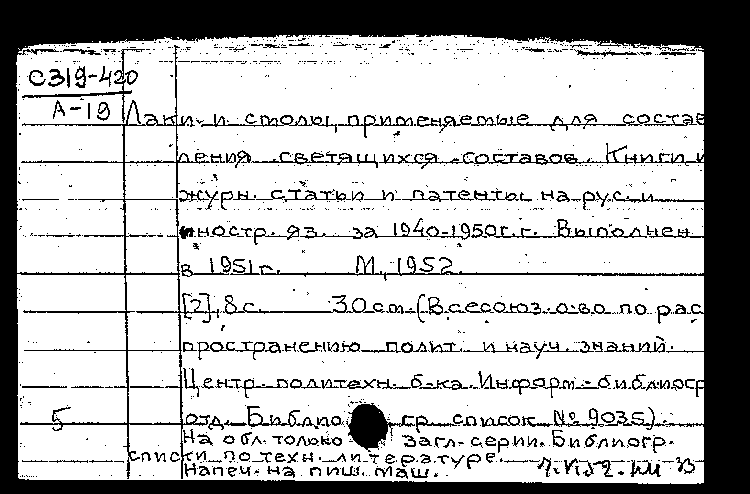 С319-420
А-19 Лаки и смолы, применяемые для состав
ления светящихся составов. Книги и
журн. статьи и патенты на рус. и
иностр. яз. за 1940-1950г.г. Выполнен
в 1951г. М., 1952.
[2], 8 с. 30 см. (Всесоюз. о-во по рас
пространению полит. и науч. знаний.
Центр. политехн. б-ка. Информ.-библиогр
5 отд. Библио гр. список № 9035).
На обл. только загл. серии. Библиогр.
списки по техн. литературе.
Напеч. на пиш. маш.